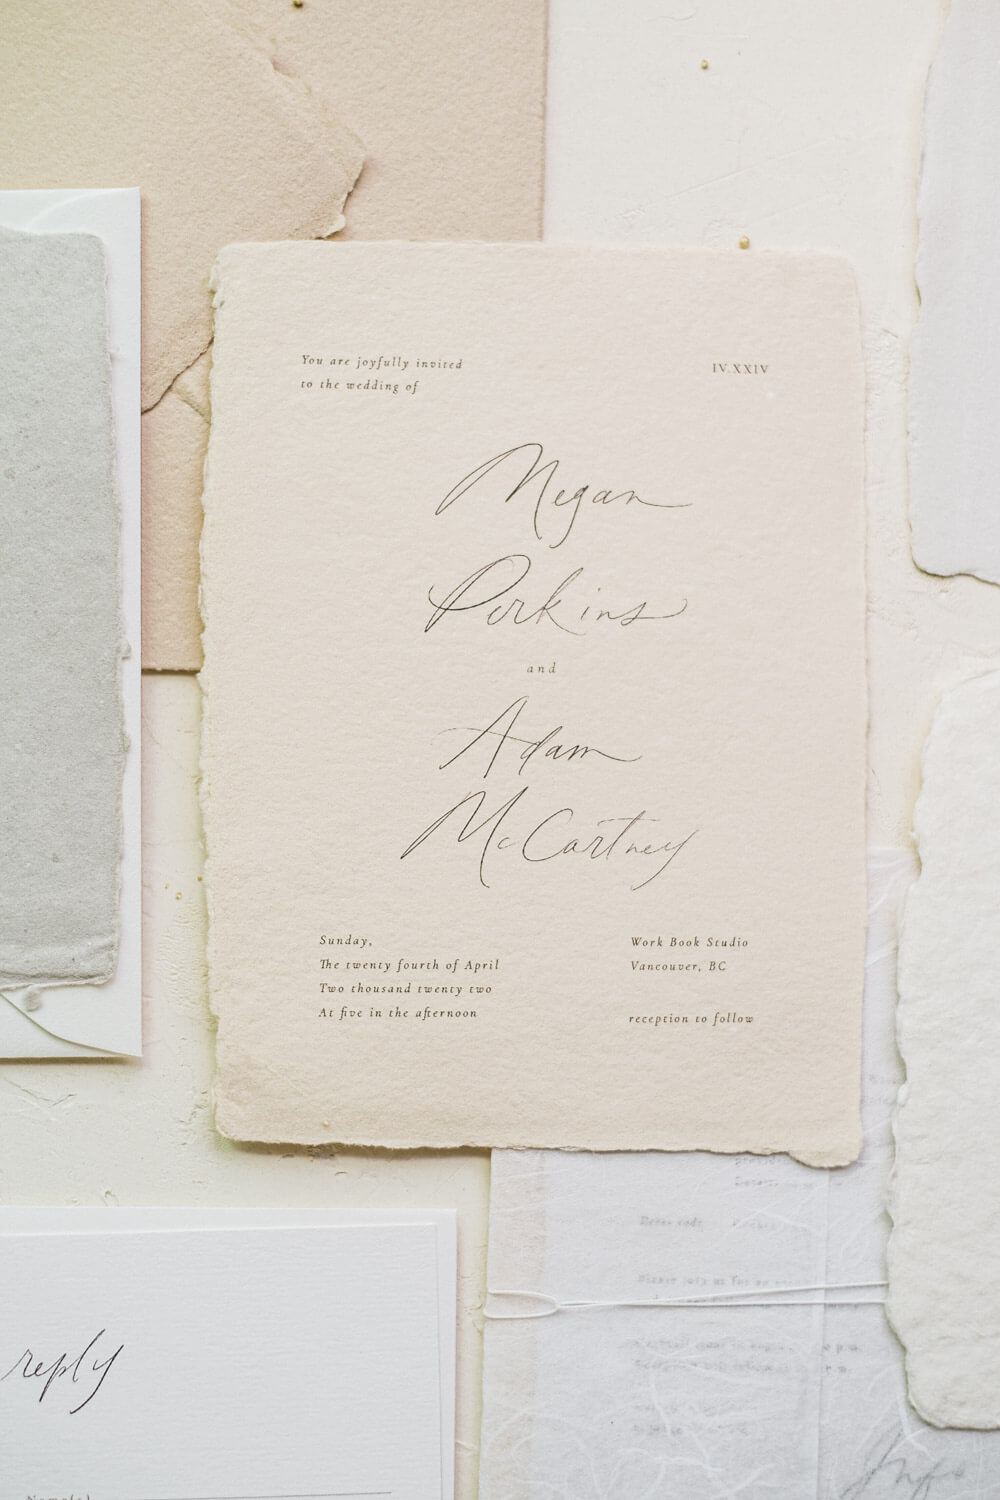 You are joyfully invited
to the wedding of
IV.XXIV
Megan
Perkins
and
Adam
McCartney
Sunday,
The twenty fourth of April
Two thousand twenty two
At five in the afternoon
Work Book Studio
Vancouver, BC
reception to follow
reply
Name(s)
Info